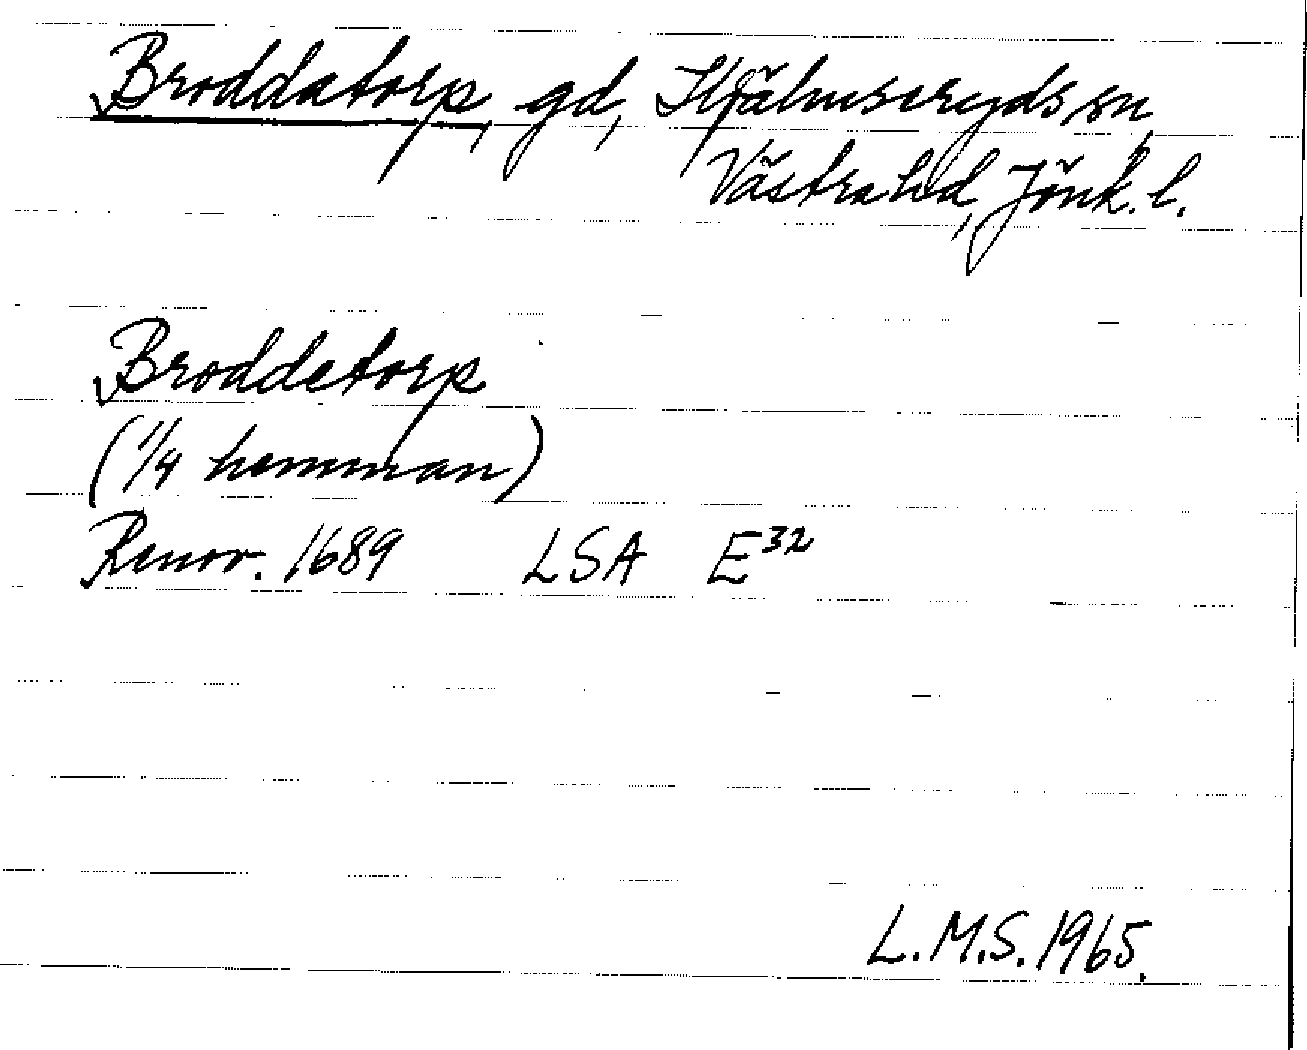 Broddatorp, gd, Hjälmseryds sn,
Västra hd, Jönk. l.
Broddetorp
(1/4 hemman)
Renov. 1689 LSA E³²
L.M.S. 1965.